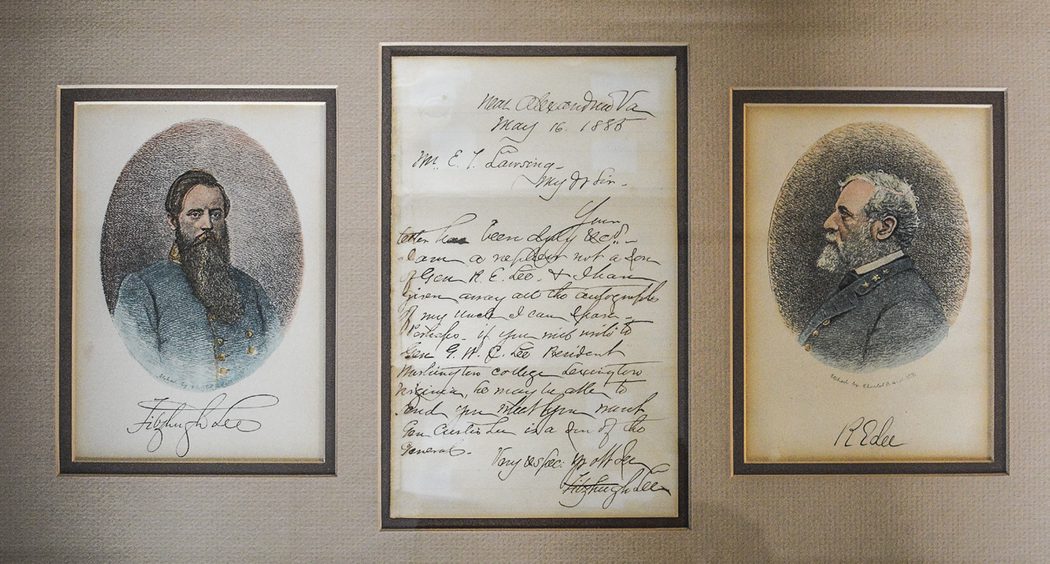 Fitzhugh Lee
Near Alexandria Va
May 16. 1885
Mr. E. T. Lansing -
My Dr Sir -
Your
letter has been duly recd. -
I am a nephew not a son
of Gen R. E. Lee - & I have
given away all the autographs
of my uncle I can spare -
Perhaps - if you will write to
Gen G. W. C. Lee President
Washington college Lexington
Virginia, he may be able to
send you what you want
Gen Custis Lee is a son of the
General -
Very respec: yr obt ser
Fitzhugh Lee
Etched by
R E Lee